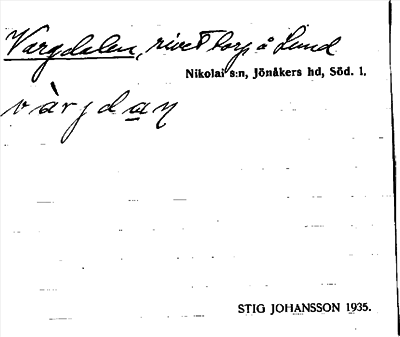 Vargdalen, rivet torp å Lund
Nikolai s:n, Jönåkers hd, Söd. l.
vàrjdaṇ
STIG JOHANSSON 1935.